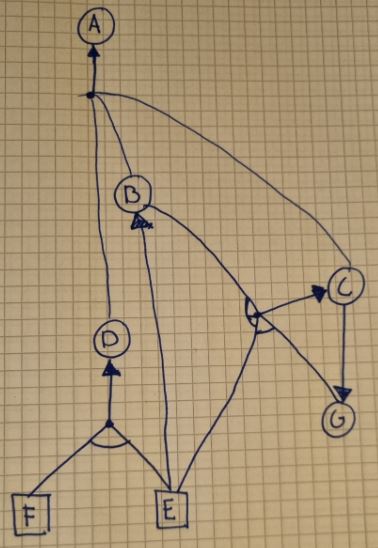 A
B
C
D
G
F
E